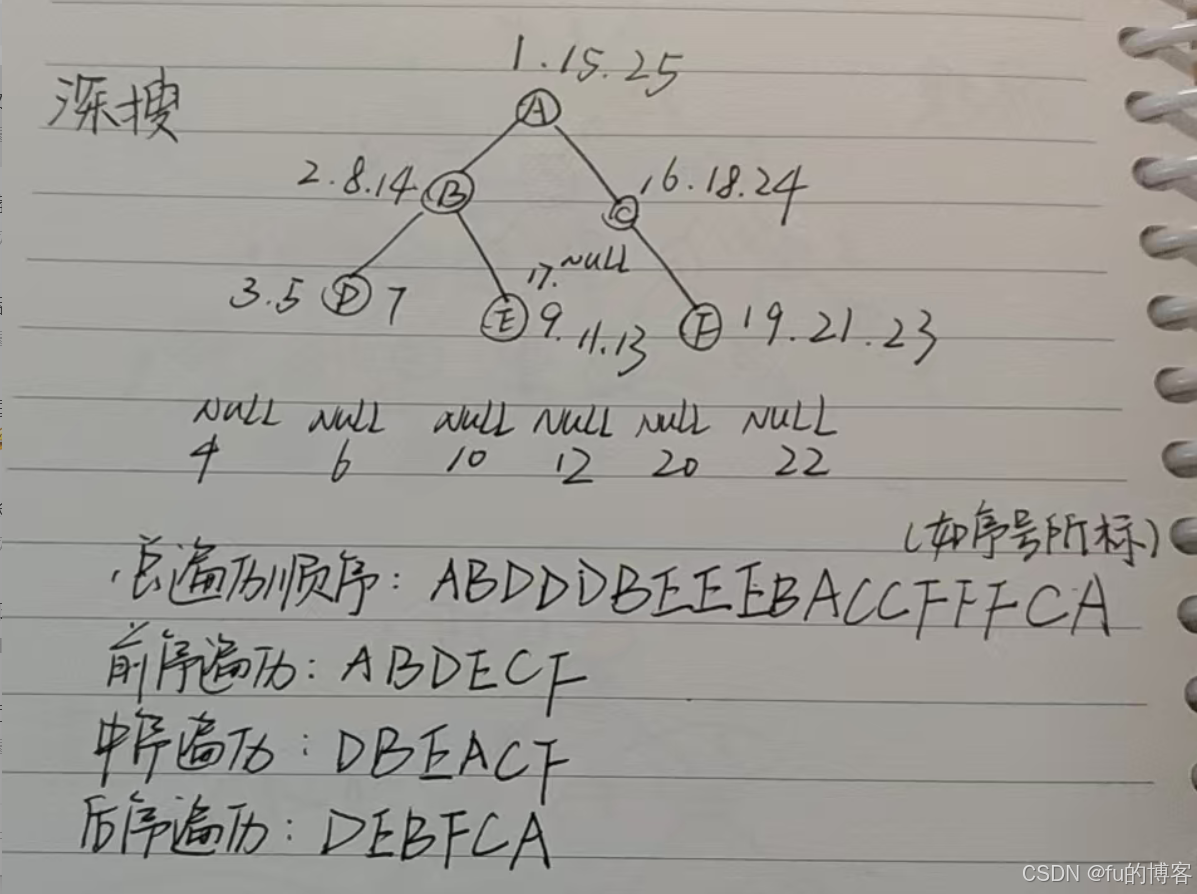 1.15.25
深搜
A
2.8.14 B
C 16.18.24
17. NULL
3.5 D 7
E 9.11.13
F 19.21.23
NULL NULL NULL NULL NULL NULL
4 6 10 12 20 22
(如序号所标)
总遍历顺序: ABDDDBEEEBACCFFFCA
前序遍历: ABDECF
中序遍历: DBEACF
后序遍历: DEBFCA
CSDN @fu的博客